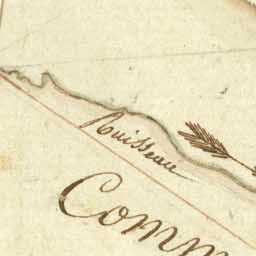 Ruisseau
Comm